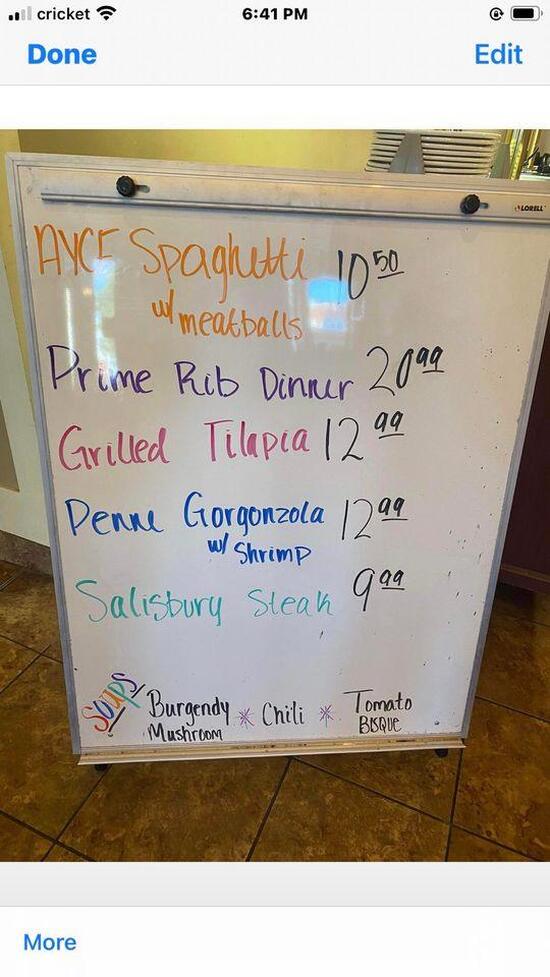 cricket 6:41 PM
Done Edit
LORELL
AYCE Spaghetti 10 50
w/ meatballs
Prime Rib Dinner 20 99
Grilled Tilapia 12 99
Penne Gorgonzola 12 99
w/ Shrimp
Salisbury Steak 9 99
Soups Burgendy * Chili * Tomato
Mushroom BISQUE
More